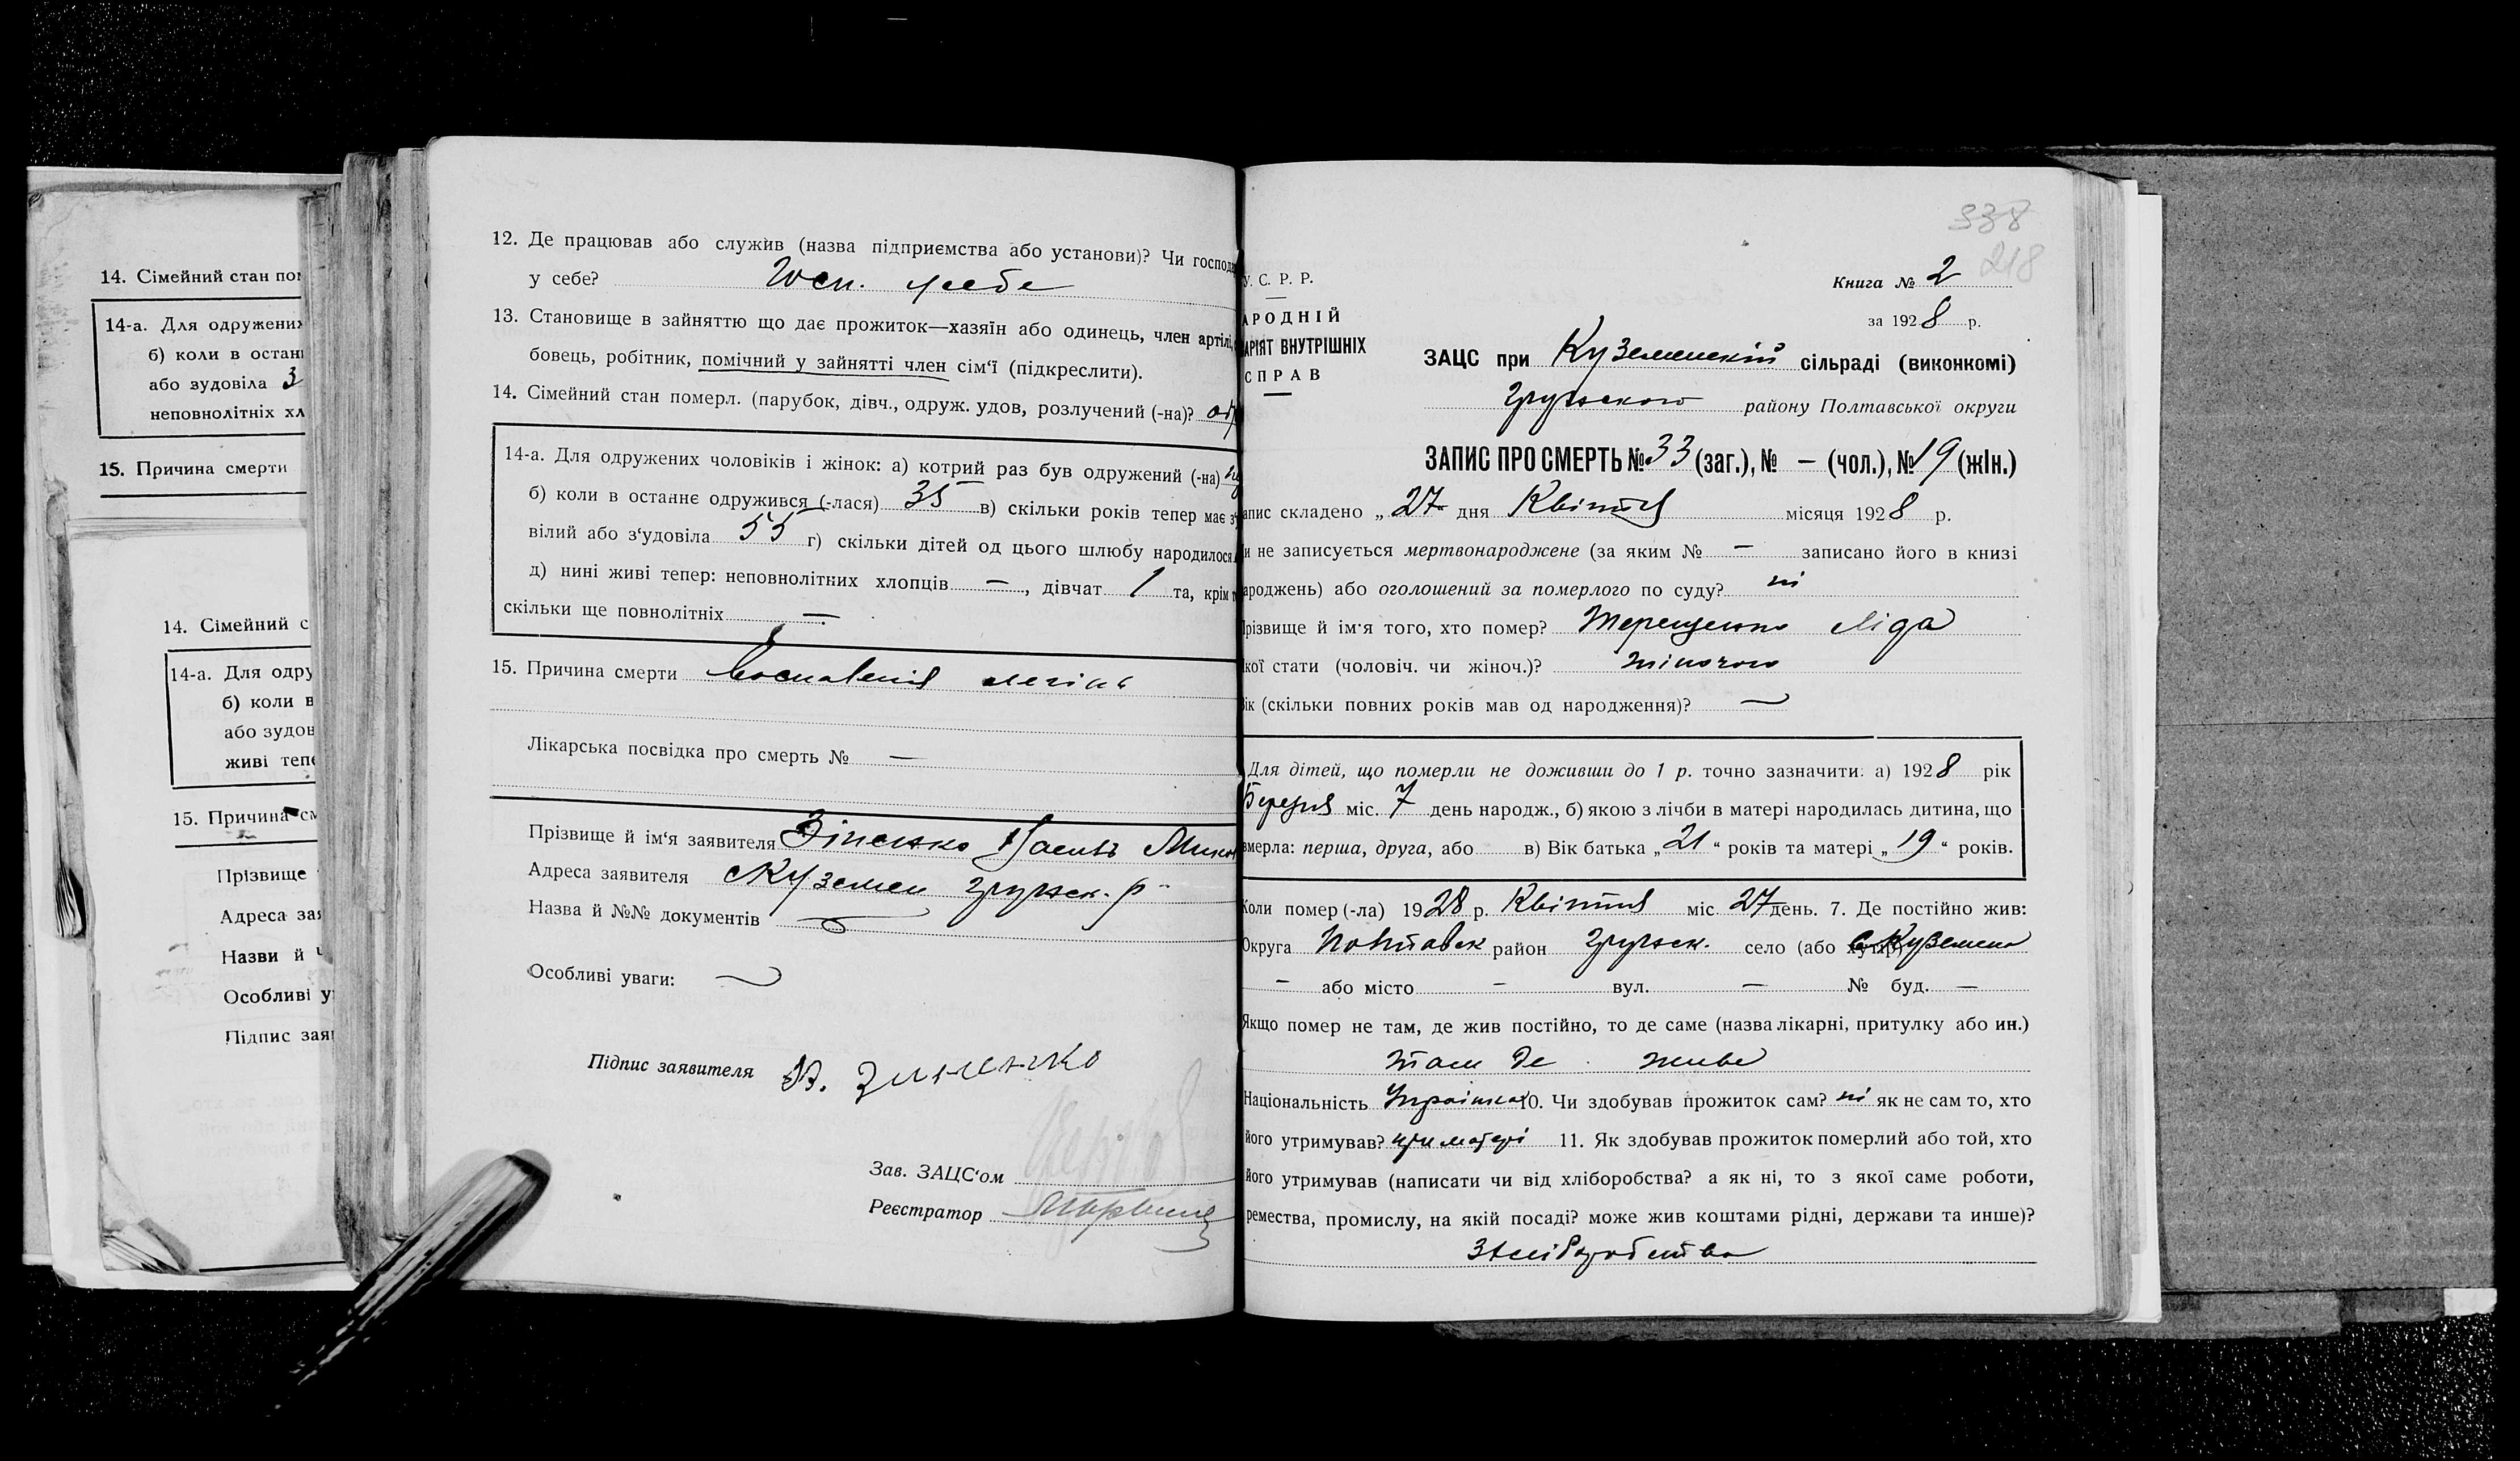 14. Сімейний стан пом
14-а. Для одружених
б) коли в останн
або зудовіла 3
неповнолітніх хл
15. Причина смерти
14. Сімейний с
14-а. Для одру
б) коли в
або зудов
живі тепе
15. Причина см
Прізвище
Адреса зая
Назви й
Особливі у
Підпис зая
12. Де працював або служив (назва підприємства або установи)? Чи господар
у себе? Госп. у себе
13. Становище в зайняттю що дає прожиток—хазяїн або одинець, член артілі,
бовець, робітник, помічний у зайнятті член сім'ї (підкреслити).
14. Сімейний стан померл. (парубок, дівч., одруж. удов, розлучений (-на)?
14-а. Для одружених чоловіків і жінок: а) котрий раз був одружений (-на)
б) коли в останнє одружився (-лася) 35 в) скільки років тепер має з'у
вілий або з'удовіла 55 г) скільки дітей од цього шлюбу народилося
д) нині живі тепер: неповнолітних хлопців —, дівчат 1 та, крім т
скільки ще повнолітніх —
15. Причина смерти Воспаленія легінь
Лікарська посвідка про смерть № —
Прізвище й ім'я заявителя Зіненко Василь Мики
Адреса заявителя с Куземен грунськ. р
Назва й №№ документів —
Особливі уваги: —
Підпис заявителя В. Зиненко
Зав. ЗАЦС'ом
Реєстратор
338
218
У. С. Р. Р.
АРОДНІЙ
АРІЯТ ВНУТРІШНІХ
СПРАВ
Книга № 2
за 1928 р.
ЗАЦС при Куземенській сільраді (виконкомі)
Грунського району Полтавської округи
ЗАПИС ПРО СМЕРТЬ № 33 (заг.), № — (чол.), № 19 (жін.)
апис складено „27 дня Квітня місяця 1928 р.
и не записується мертвонароджене (за яким № — записано його в книзі
ароджень) або оголошений за померлого по суду? ні
різвище й ім'я того, хто помер? Терещенко Ліда
кої стати (чоловіч. чи жіноч.)? жіночого
ік (скільки повних років мав од народження)? —
Для дітей, що померли не доживши до 1 р. точно зазначити: а) 1928 рік
Березня міс. 7 день народж., б) якою з лічби в матері народилась дитина, що
вмерла: перша, друга, або в) Вік батька „21“ років та матері „19“ років.
Коли помер (-ла) 1928 р. Квітня міс 27 день. 7. Де постійно жив:
Округа Полтавськ район Грунськ. село (або хутір) с. Куземени
— або місто — вул. — № буд. —
Якщо помер не там, де жив постійно, то де саме (назва лікарні, притулку або ин.)
там де живе
Національність Українка 10. Чи здобував прожиток сам? ні як не сам то, хто
його утримував? при матері 11. Як здобував прожиток померлий або той, хто
його утримував (написати чи від хліборобства? а як ні, то з якої саме роботи,
ремества, промислу, на якій посаді? може жив коштами рідні, держави та инше)?
З хліборобства